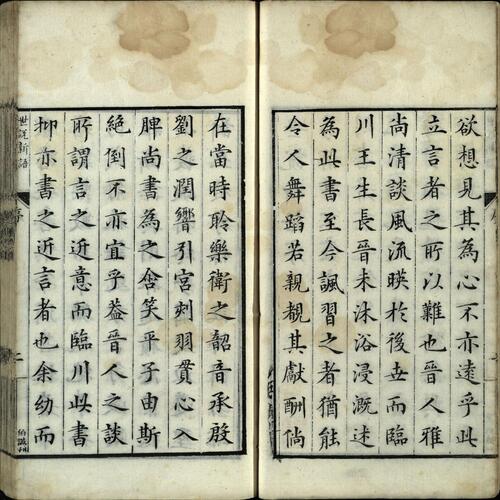 欲想見其為心不亦遠乎此
立言者之所以難也晉人雅
尚清談風流暎扵後世而臨
川王生長晉末沐浴浸溉述
為此書至今諷習之者猶能
令人舞蹈若親覩其獻酬倘
在當時聆樂衛之韶音承殷
劉之潤響引宮刻羽貫心入
脾尚書為之含笑平子由斯
絕倒不亦宜乎葢晉人之談
所謂言之近意而臨川此書
抑亦書之近言者也余幼而
世說新語
序
二